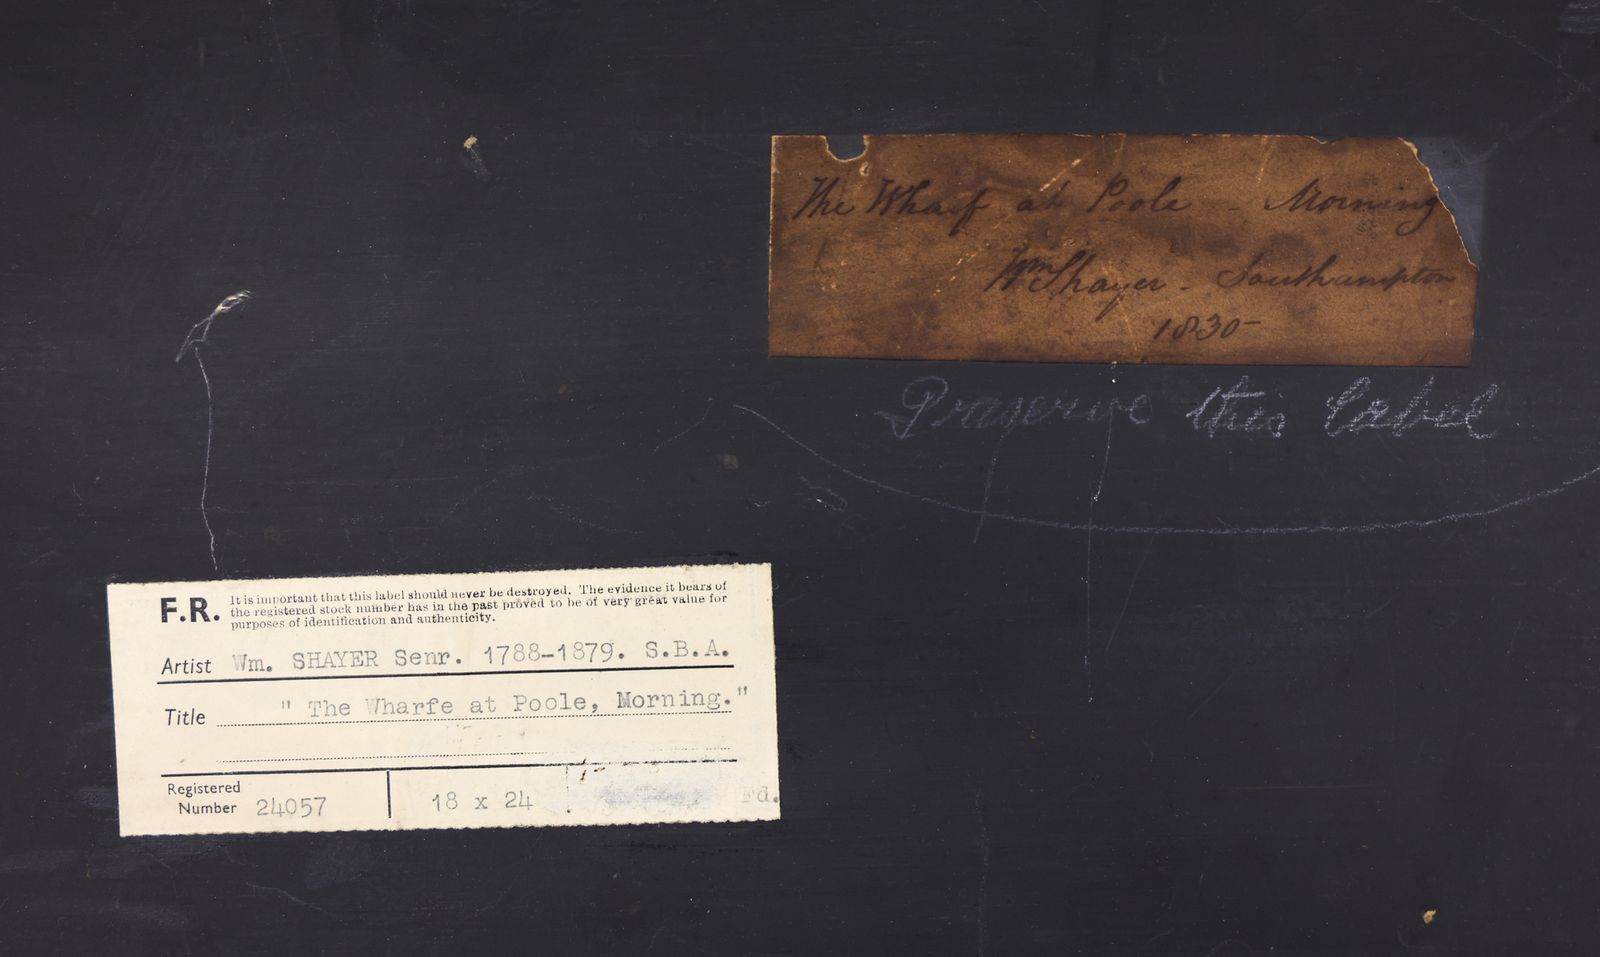 The Wharf at Poole - Morning
Wm Shayer - Southampton
1830-
Preserve this label
F.R. It is important that this label should never be destroyed. The evidence it bears of
the registered stock number has in the past proved to be of very great value for
purposes of identification and authenticity.
Artist Wm. SHAYER Senr. 1788-1879. S.B.A.
Title " The Wharfe at Poole, Morning."
Registered
Number 24057 18 x 24 Fd.